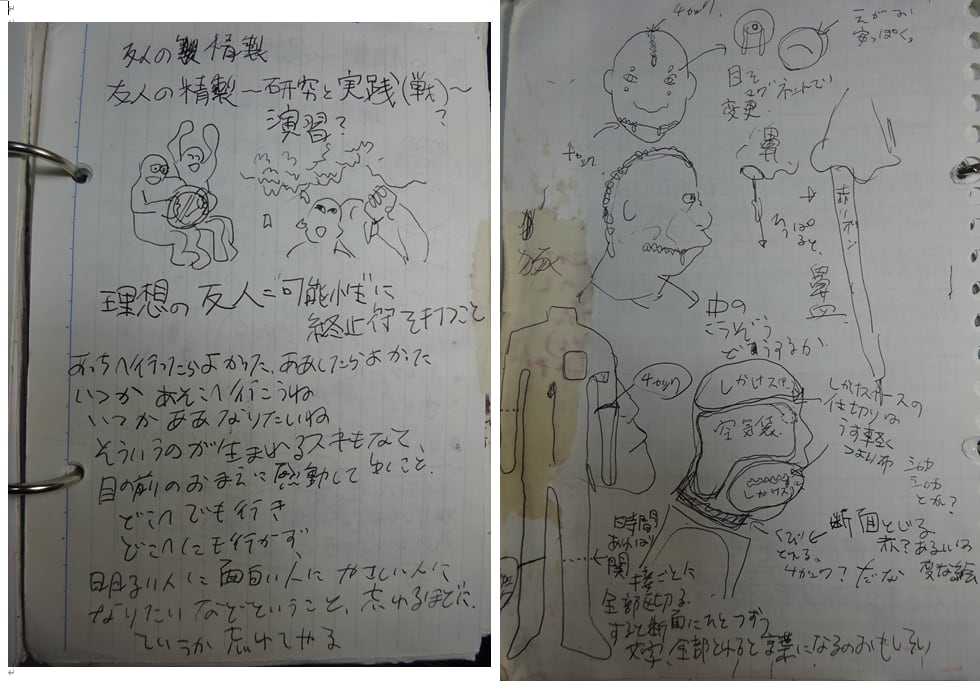 友人の製 精製
友人の精製〜研究と実践(戦)〜
?
演習?
理想の友人=可能性に
終止符を打つこと
あっちへ行ったらよかった、ああしたらよかった
いつかあそこへ行こうね
いつかああなりたいね
そういうのが生まれるスキもなく、
目の前のおまえに感動して
どこへでも行き
どこへにも行かず
明るい人に面白い人にやさしい人に
なりたいなどということ、忘れるほどに
ていうか忘れてやる
チャック
えがお
安っぽく。
目を
マグネットで
変更.
チャック
鼻
ひっぱると、
鼻血
中の
こうぞう
どうするか.
チャック
しかけスペ
空気袋
しかけスペースの
仕切りは
うす軽く
つよい布
シャカ
シャカ
とか?
くびが
とれる。
チャック?
断面とじる
赤?あるいは
変な絵
だな
時間
あれば
関
接ごとに
全部区切る
すると断面にひとつずつ
文字、全部とれると言葉になるのおもしろい